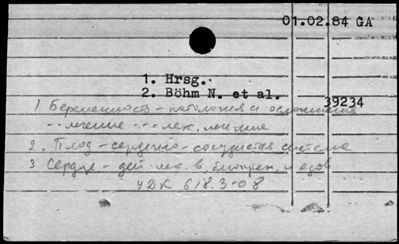 01.02.84 GA
1. Hrsg.
2. Böhm N. et al.
39234
1. Беременность - патология и осложнения
- - лечение - - - лек. лечение
2. Плод - сердечно - сосудистая система
3 Сердце - дей. лек в, биопреп. и ядов
УДК 618.3-08